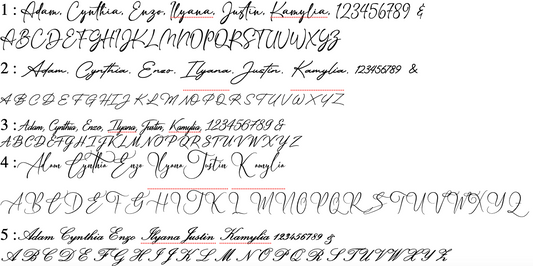 1 : Adam, Cynthia, Enzo, Ilyana, Justin, Kamylia, 123456789 &
ABCDEFGHIJKLMNOPQRSTUVWXYZ
2 : Adam, Cynthia, Enzo, Ilyana, Justin, Kamylia, 123456789 &
ABCDEFGHIJKLMNOPQRSTUVWXYZ
3 : Adam, Cynthia, Enzo, Ilyana, Justin, Kamylia, 123456789 &
ABCDEFGHIJKLMNOPQRSTUVWXYZ
4 : Adam Cynthia Enzo Ilyana Justin Kamylia
ABCDEFGHIJKLMNOPQRSTUVWXYZ
5 : Adam Cynthia Enzo Ilyana Justin Kamylia 123456789 &
ABCDEFGHIJKLMNOPQRSTUVWXYZ